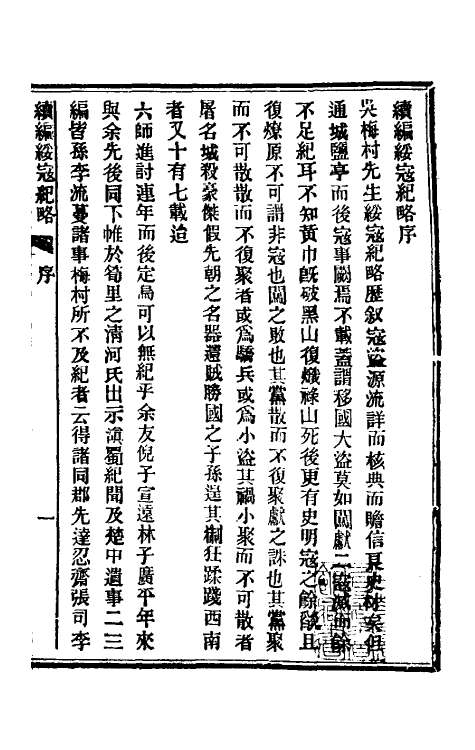 續編綏寇紀略序
吳梅村先生綏寇紀略歷叙寇盜源流詳而核典而贍信良史材矣但
通城鹽亭而後寇事闕焉不載蓋謂移國大盜莫如闖獻二寇滅而餘
不足紀耳不知黃巾旣破黑山復熾祿山死後更有史明寇之餘燄且
復燎原不可謂非寇也闖之敗也其黨散而不復聚獻之誅也其黨聚
而不可散散而不復聚者或爲驕兵或爲小盜其禍小聚而不可散者
屠名城殺豪傑假先朝之名器還賊勝國之子孫逞其猘狂蹂踐西南
者又十有七載迨
六師進討連年而後定烏可以無紀乎余友倪子宣遠林子廣平年來
與余先後同下帷於筍里之淸河氏出示滇蜀紀聞及楚中遺事二三
編皆孫李流蔓諸事梅村所不及紀者云得諸同郡先達忍齋張司李
續編綏寇紀略 序 一